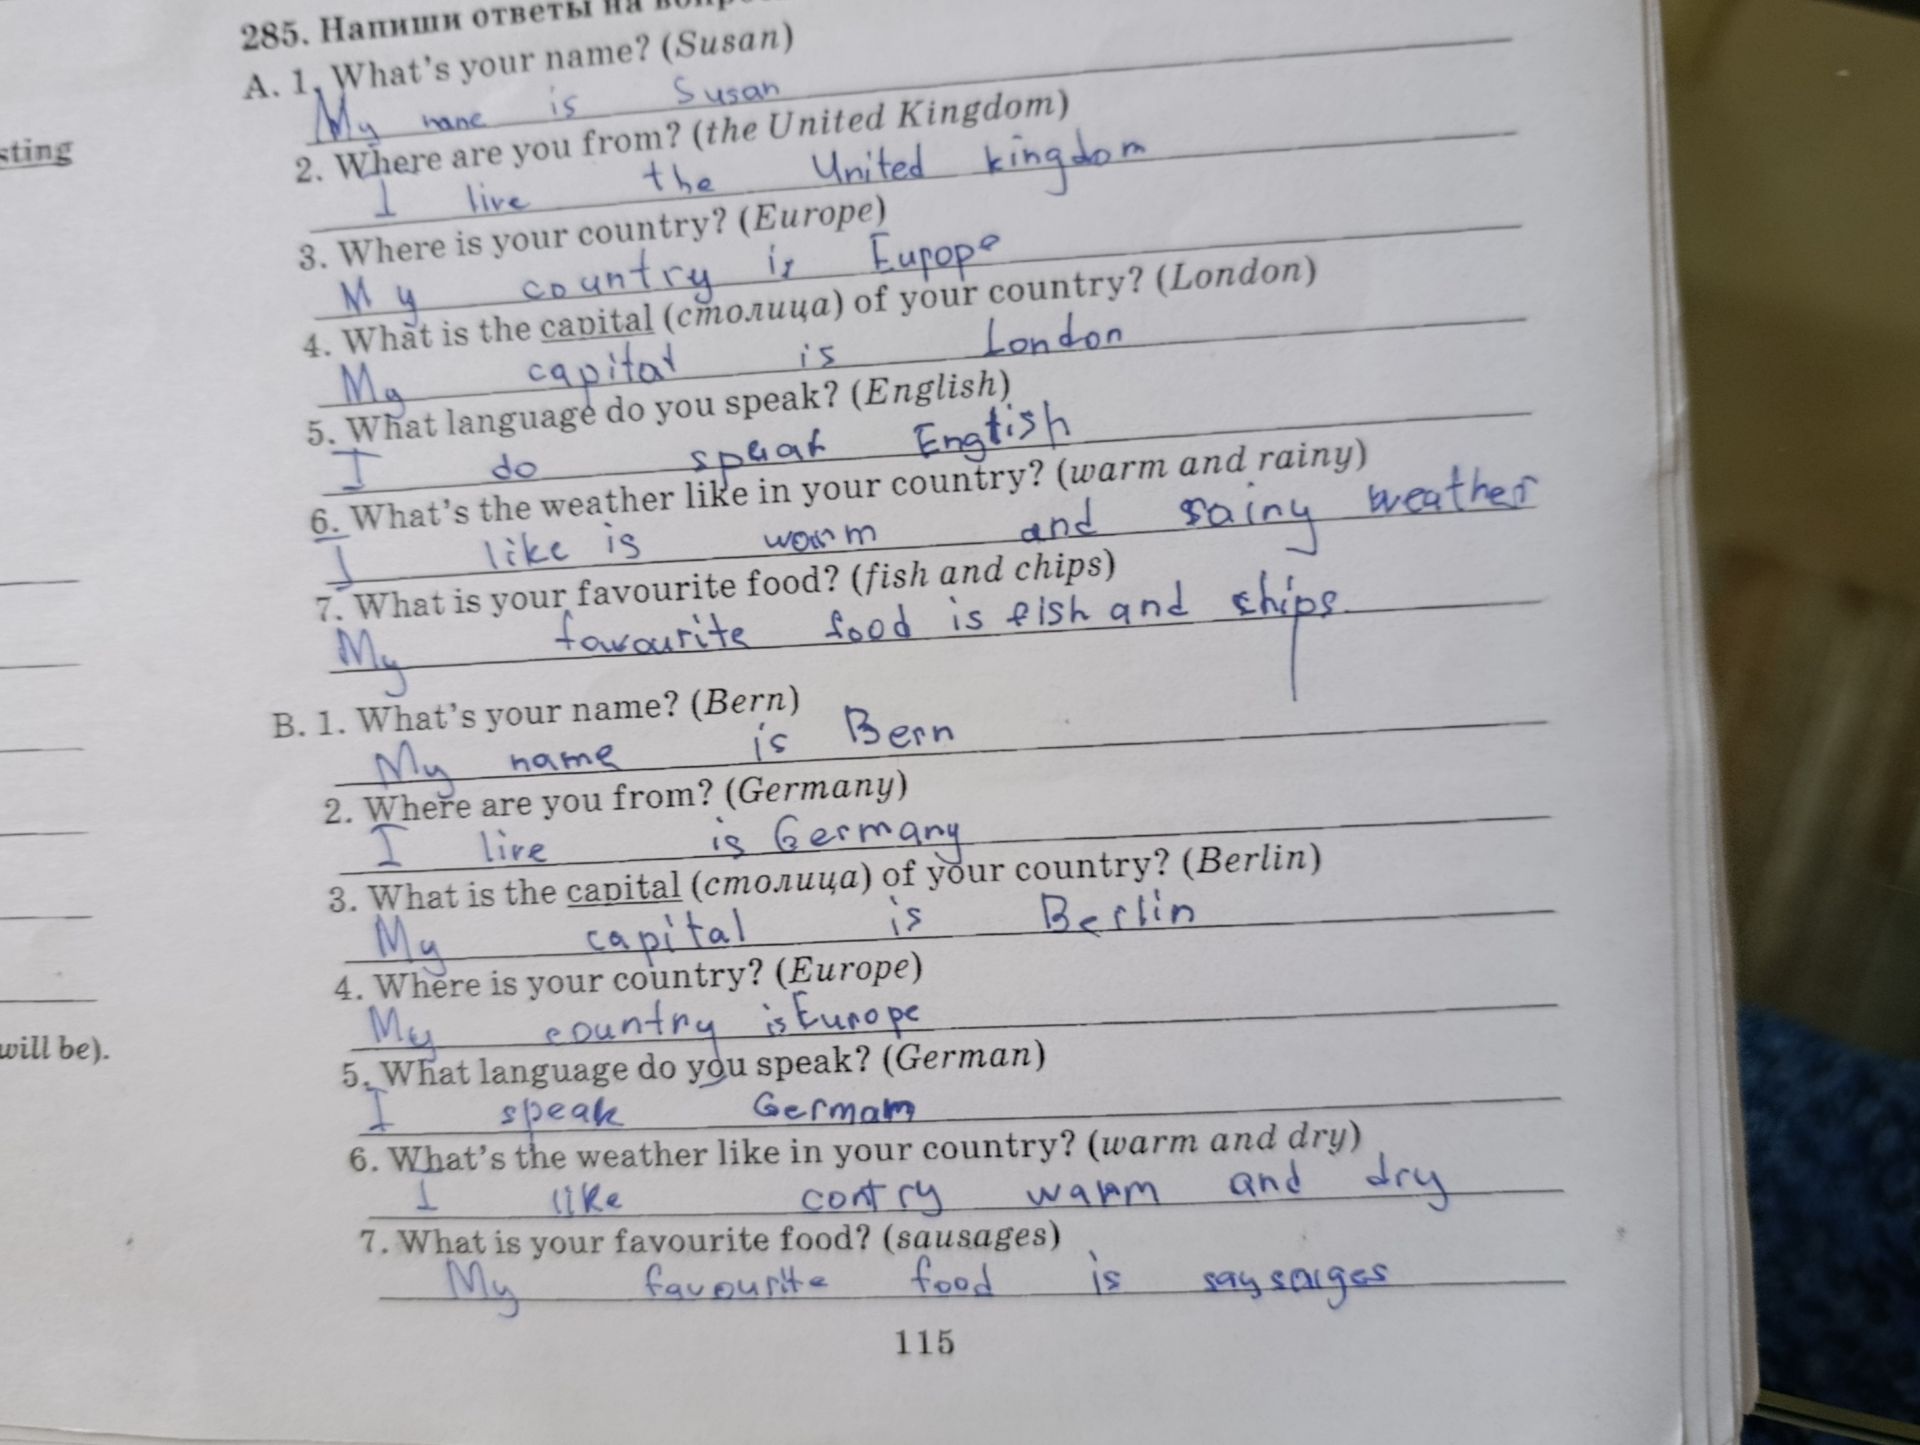 285. Напиши ответы на
A. 1. What's your name? (Susan)
My name is Susan
sting
2. Where are you from? (the United Kingdom)
I live the United kingdom
3. Where is your country? (Europe)
My country is Europe
4. What is the capital (столица) of your country? (London)
My capital is London
5. What language do you speak? (English)
I do speak English
6. What's the weather like in your country? (warm and rainy)
I like is warm and rainy weather
7. What is your favourite food? (fish and chips)
My favourite food is fish and chips
B. 1. What's your name? (Bern)
My name is Bern
2. Where are you from? (Germany)
I live is Germany
3. What is the capital (столица) of your country? (Berlin)
My capital is Berlin
4. Where is your country? (Europe)
My country is Europe
will be).
5. What language do you speak? (German)
I speak German
6. What's the weather like in your country? (warm and dry)
I like contry warm and dry
7. What is your favourite food? (sausages)
My favourite food is
115